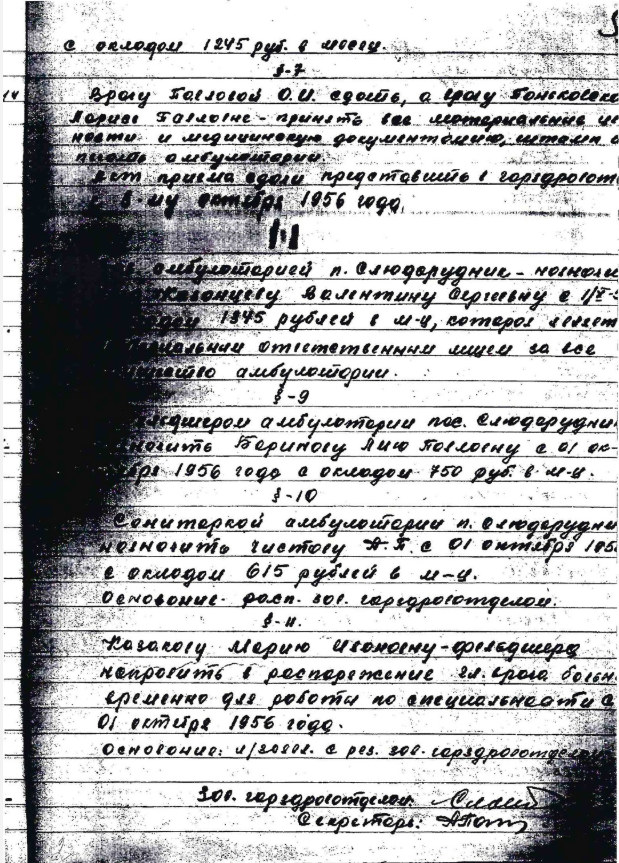 с окладом 1245 руб. в месяц.
§-7
Врачу Павловой О.И. сдать, а врачу
Ларисе Павловне - принять все материальные
ности и медицинскую документацию, штамп и
печать амбулатории.
Акт приема сдачи представить в горздравот
к 8-му октября 1956 года.
амбулаторией п. Слюдорудник - назначи
Казанцеву Валентину Сергеевну с
1245 рублей в м-ц, которая являет
материальным ответственным лицем за все
имущество амбулатории.
§-9
Фельдшером амбулатории пос. Слюдорудни
назначить Баринову Лию Павловну с 01 ок-
тября 1956 года с окладом 750 руб. в м-ц.
§-10
Санитаркой амбулатории п. Слюдорудни
назначить Чистову А.П. с 01 октября 195
с окладом 615 рублей в м-ц.
Основание: расп. зав. горздравотделом.
§-11.
Казакову Марию Ивановну - фельдшера
направить в распоряжение гл. врача больн
временно для работы по специальности с
01 октября 1956 года.
Основание: с рез. зав. горздравотделом
Зав. горздравотделом:
Секретарь: